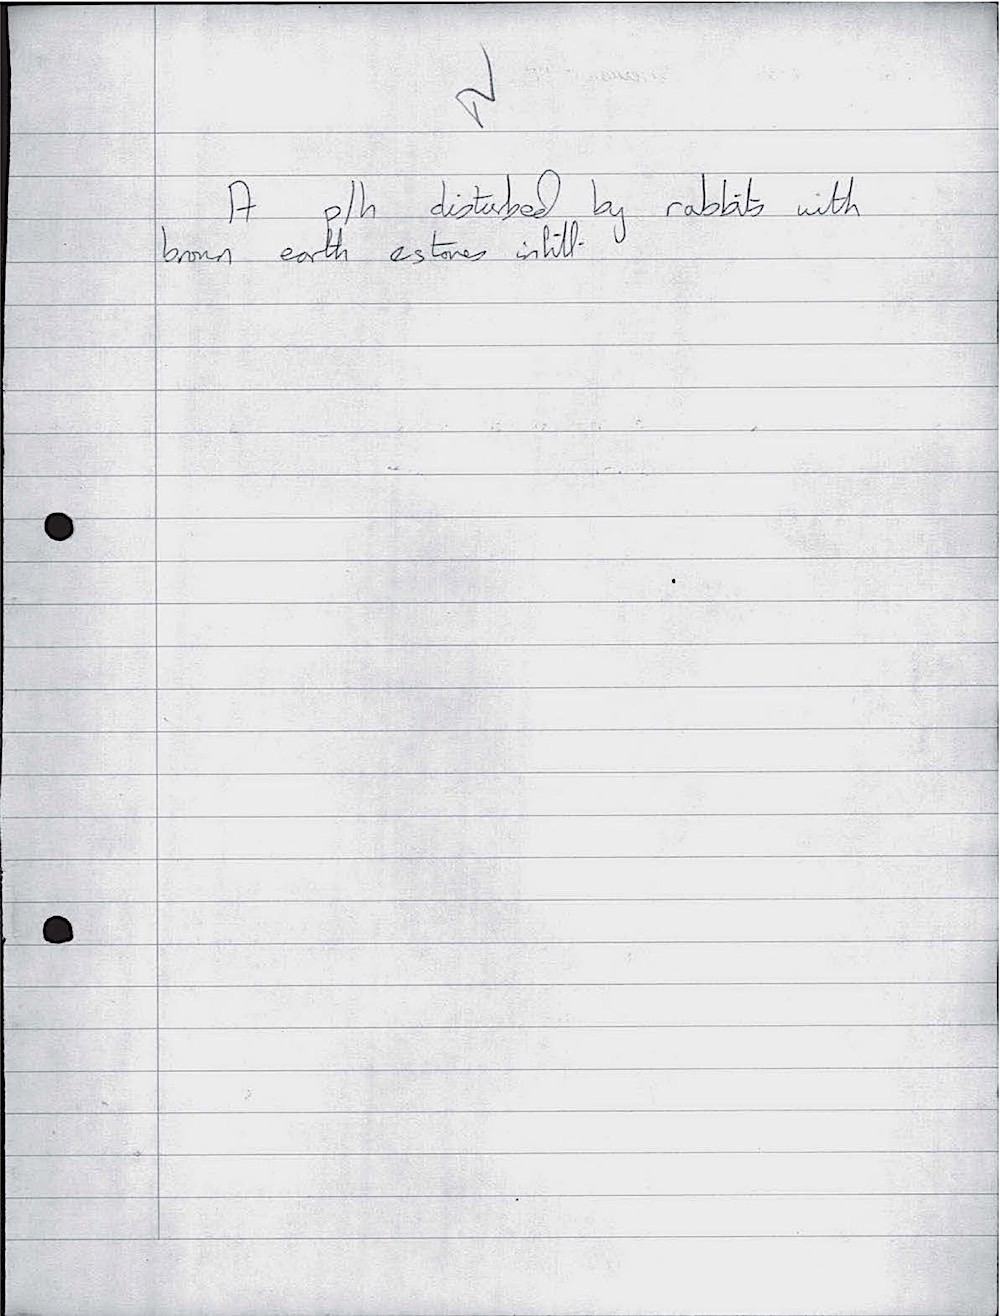 A p/h disturbed by rabbits with
brown earth & stones infill.